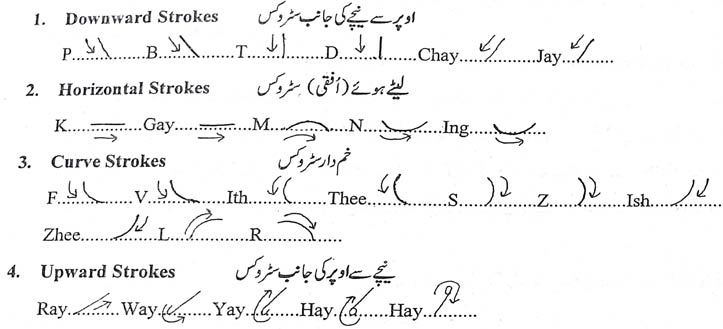 1. Downward Strokes اوپر سے نیچے کی جانب سٹروکس
P..........B..........T..........D..........Chay..........Jay..........
2. Horizontal Strokes لیٹے ہوئے (اُفقی) سٹروکس
K..........Gay..........M..........N..........Ing..........
3. Curve Strokes خم دار سٹروکس
F..........V..........Ith..........Thee..........S..........Z..........Ish..........
Zhee..........L..........R..........
4. Upward Strokes نیچے سے اوپر کی جانب سٹروکس
Ray..........Way..........Yay..........Hay..........Hay..........